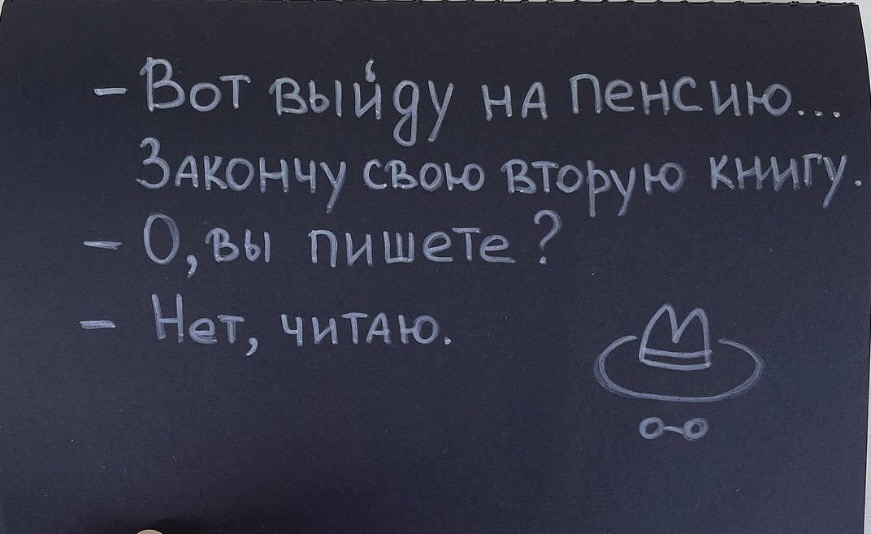 - Вот выйду на пенсию...
Закончу свою вторую книгу.
- О, вы пишете?
- Нет, читаю.